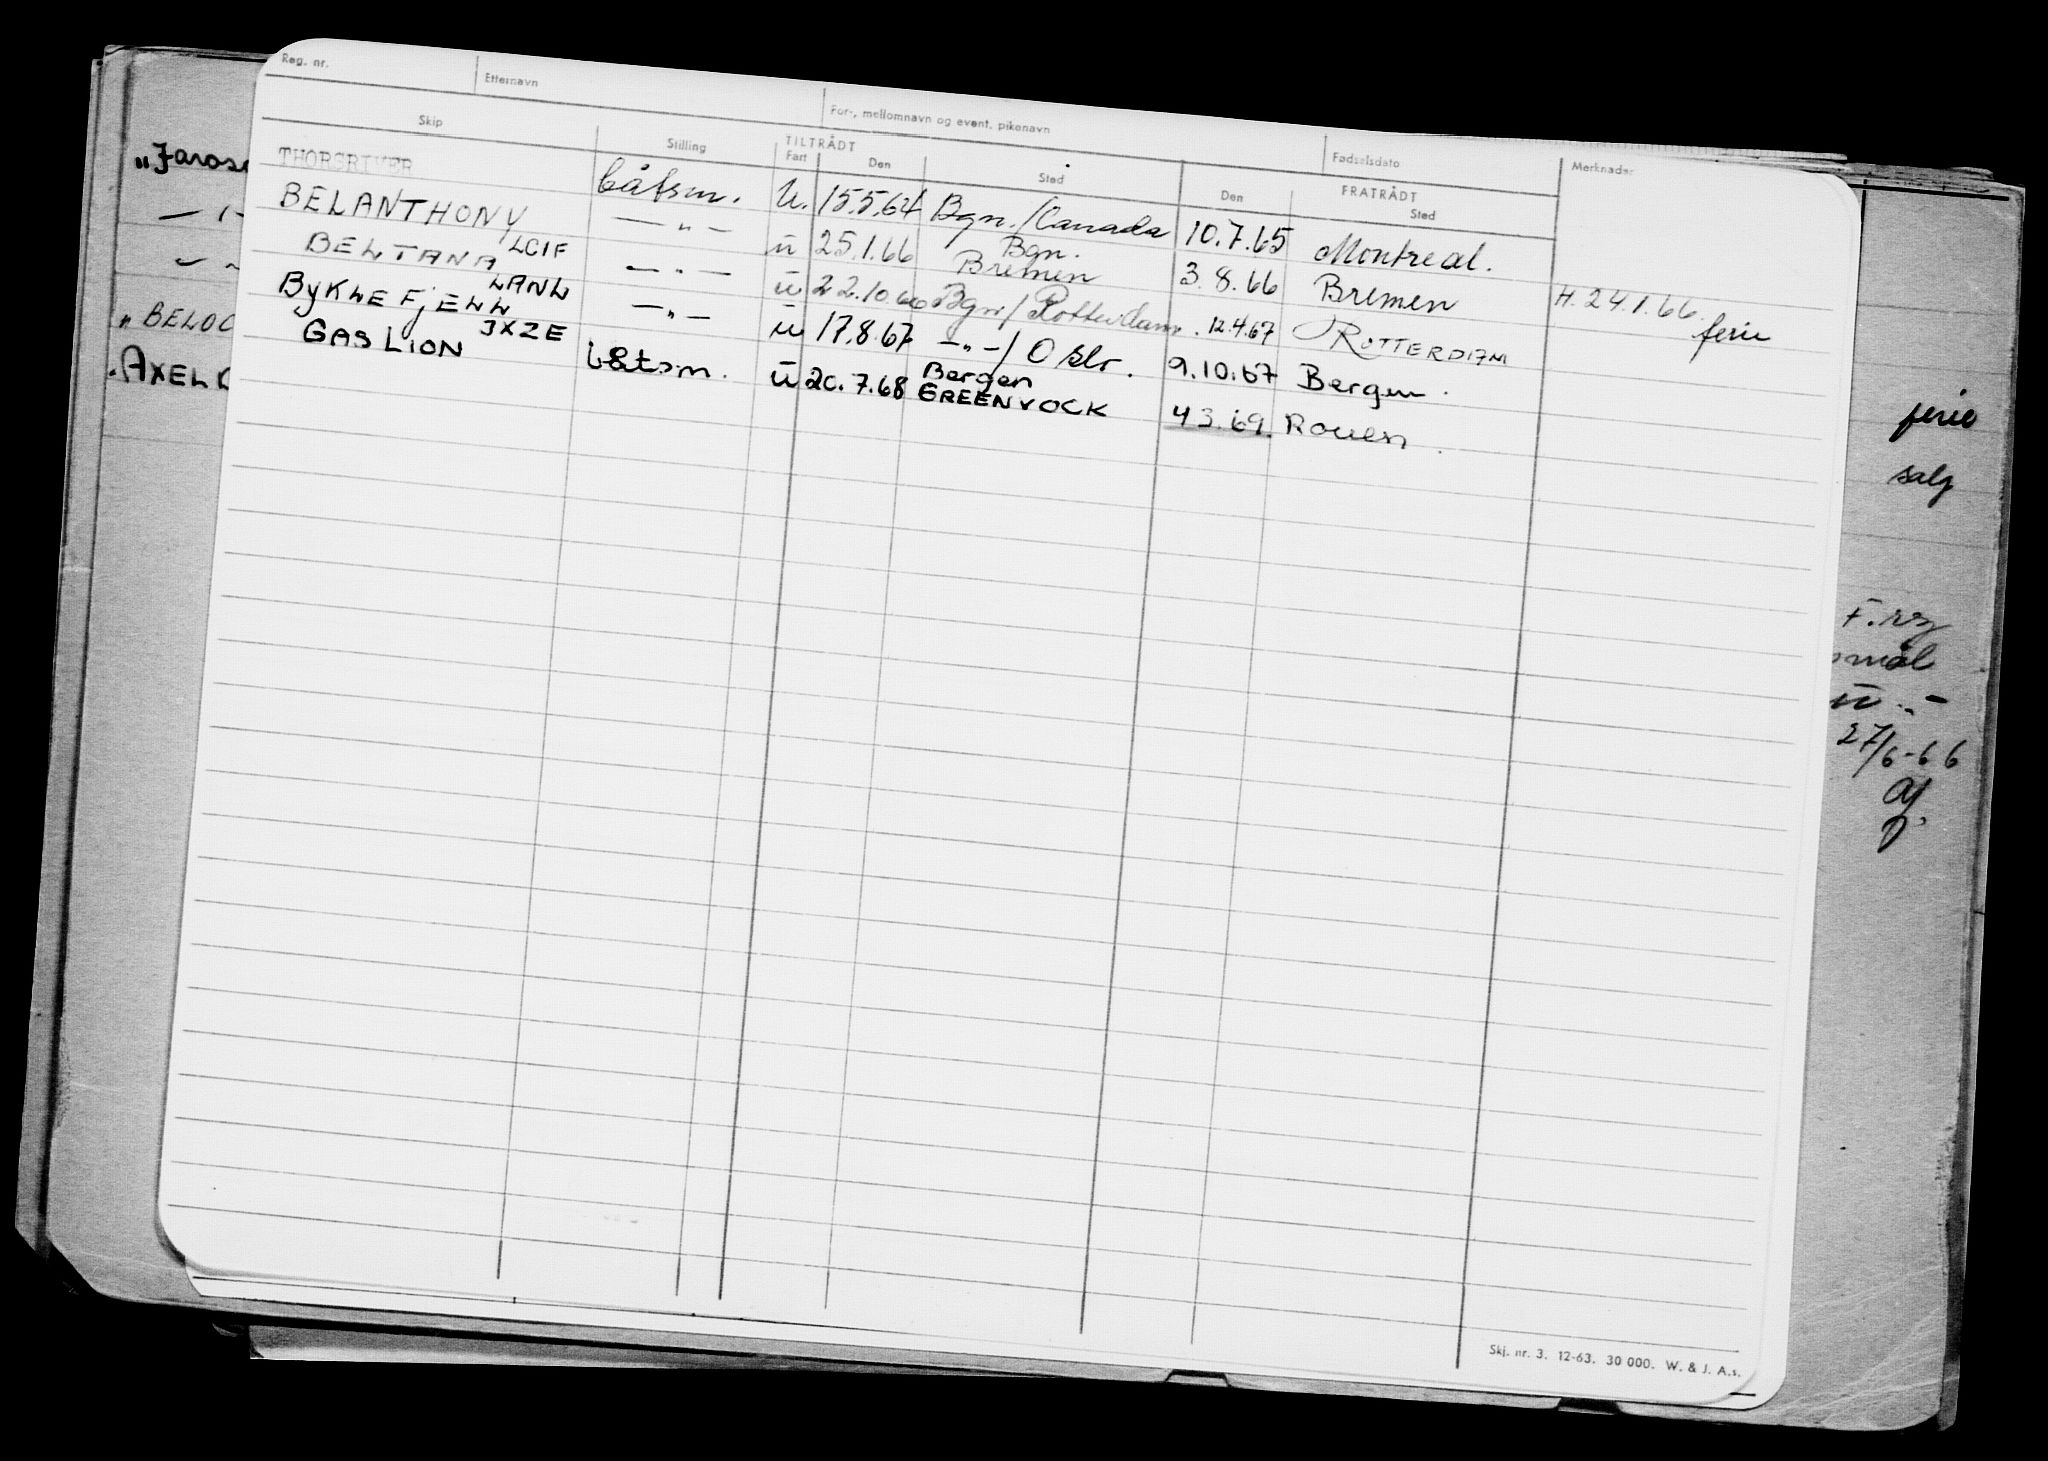 Reg. nr. Etternavn For-, mellomnavn og event. pikenavn Fødselsdato Merknader
Skip Stilling TILTRÅDT FRATRÅDT
Fart Den Sted Den Sted
THORSRIVER båtsm. U. 15.5.64 Bgn./Canada 10.7.65 Montreal.
BELANTHONY LCIF — " — ū 25.1.66 Bgn. Bremen 3.8.66 Bremen H. 24.1.66. ferie
BELTANA LANL — " — ū 22.10.66 Bgn/Rotterdam. 12.4.67 ROTTERDAM
BYKLEFJELL JXZE — " — ū 17.8.67 — " —/Oslo. 9.10.67 Bergen.
GAS LION båtsm. ū 20.7.68 Bergen GREENVOCK 4 3.69. Rouen.
"BELOC
AXEL
ferie
salg
27/6-66
Skj. nr. 3. 12-63. 30 000. W. & J. A.s.